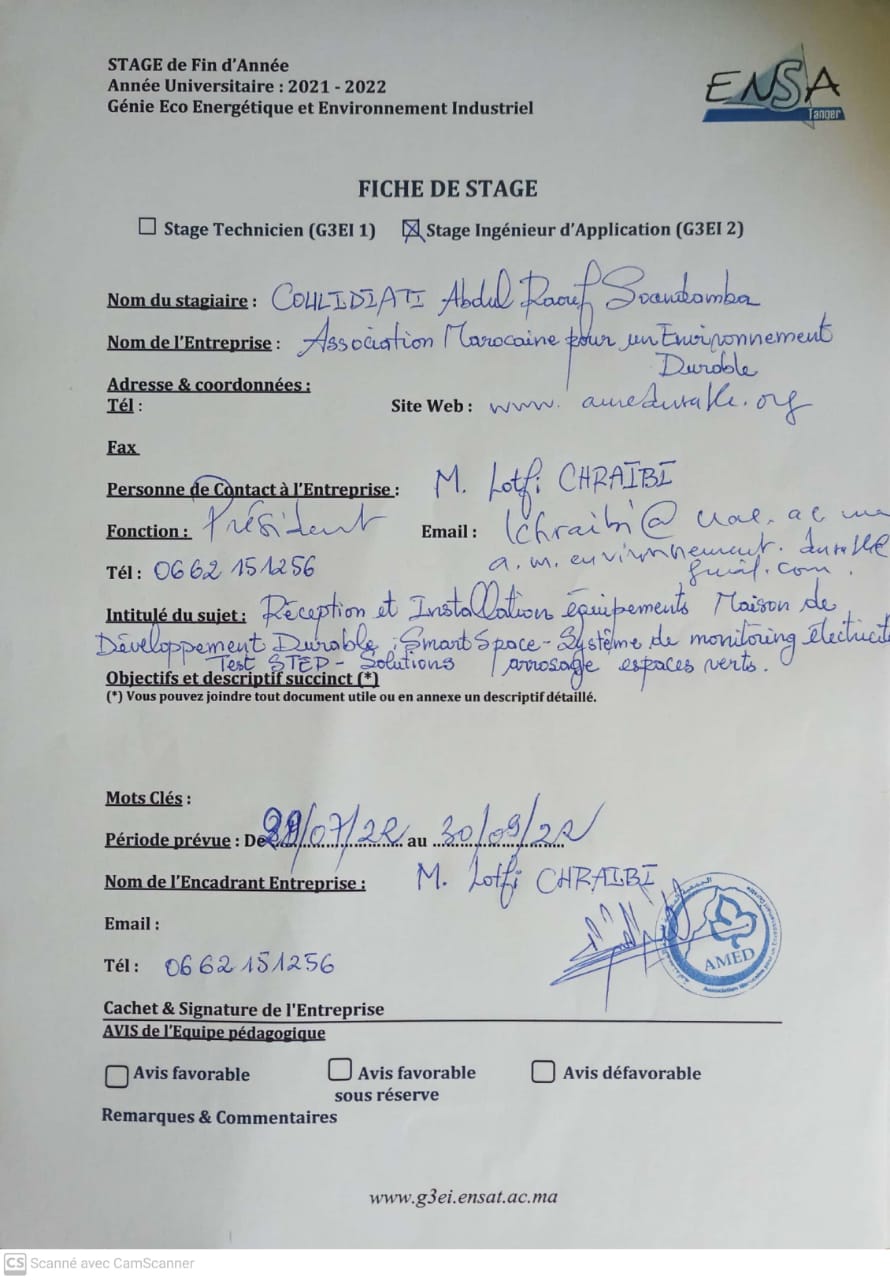 STAGE de Fin d'Année
Année Universitaire : 2021 - 2022
Génie Eco Energétique et Environnement Industriel
ENSA
Tanger
FICHE DE STAGE
Stage Technicien (G3EI 1) Stage Ingénieur d'Application (G3EI 2)
Nom du stagiaire : COULIDIATI Abdul Raouf
Nom de l'Entreprise : Association Marocaine pour un Environnement
Durable
Adresse & coordonnées :
Tél : Site Web : www. amedurable.org
Fax
Personne de Contact à l'Entreprise : M. Lotfi CHRAÏBI
Fonction : Président Email : lchraibi@uae.ac.ma
a.m.environnement.durable
gmail.com.
Tél : 06 62 151256
Intitulé du sujet : Réception et Installation équipements Maison de
Développement Durable : Smart Space - Système de monitoring électricité
Test STEP - Solutions arrosage espaces verts.
Objectifs et descriptif succinct (*)
(*) Vous pouvez joindre tout document utile ou en annexe un descriptif détaillé.
Mots Clés :
Période prévue : De /07/22 au 30/09/22
Nom de l'Encadrant Entreprise : M. Lotfi CHRAÏBI
Email :
AMED
Tél : 06 62 151256
Cachet & Signature de l'Entreprise
AVIS de l'Equipe pédagogique
Avis favorable Avis favorable Avis défavorable
sous réserve
Remarques & Commentaires
www.g3ei.ensat.ac.ma
CS Scanné avec CamScanner